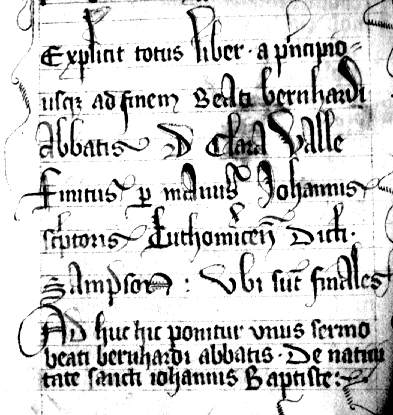 Explicit totus liber · a pncipio
usqz ad finem Beati bernhardi
Abbatis D Clara Valle
Finitus p manus Johannis
scptoris Dicti ·
Sampson : Vbi sut finales
Ad huc hic ponitur vnus sermo
beati bernhardi abbatis · De natiui
tate sancti iohannis Baptiste :